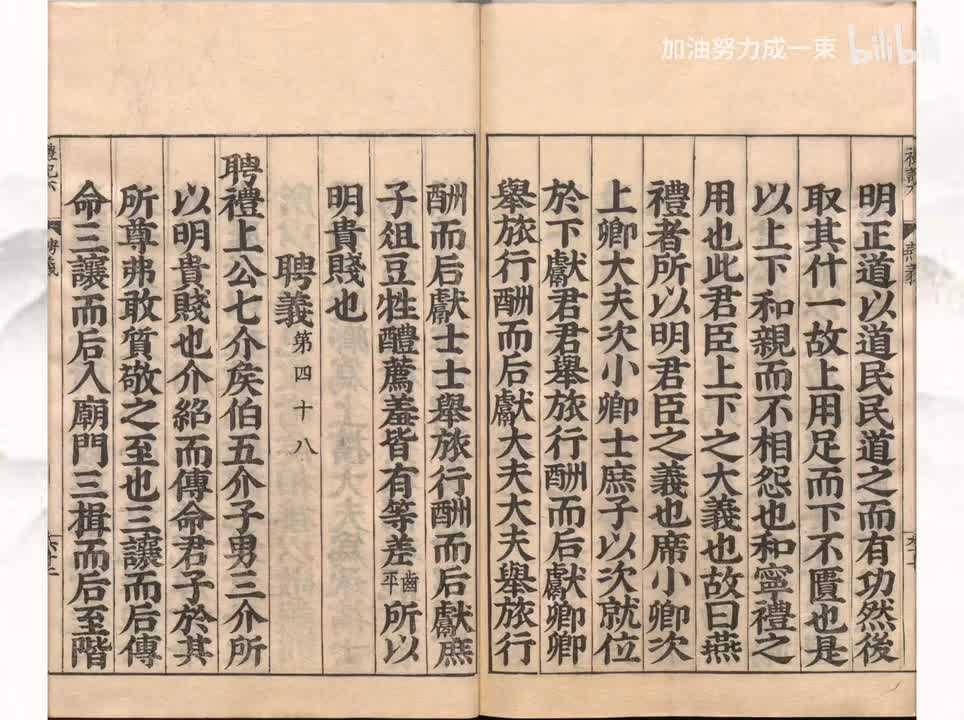 加油努力成一束 bilibili
明正道以道民民道之而有功然後
取其什一故上用足而下不匱也是
以上下和親而不相怨也和寧禮之
用也此君臣上下之大義也故曰燕
禮者所以明君臣之義也席小卿次
上卿大夫次小卿士庶子以次就位
於下獻君君舉旅行酬而后獻卿卿
舉旅行酬而后獻大夫大夫舉旅行
酬而后獻士士舉旅行酬而后獻庶
子俎豆牲醴薦羞皆有等差齒平所以
明貴賤也
聘義第四十八
聘禮上公七介矦伯五介子男三介所
以明貴賤也介紹而傳命君子於其
所尊弗敢質敬之至也三讓而后傳
命三讓而后入廟門三揖而后至階